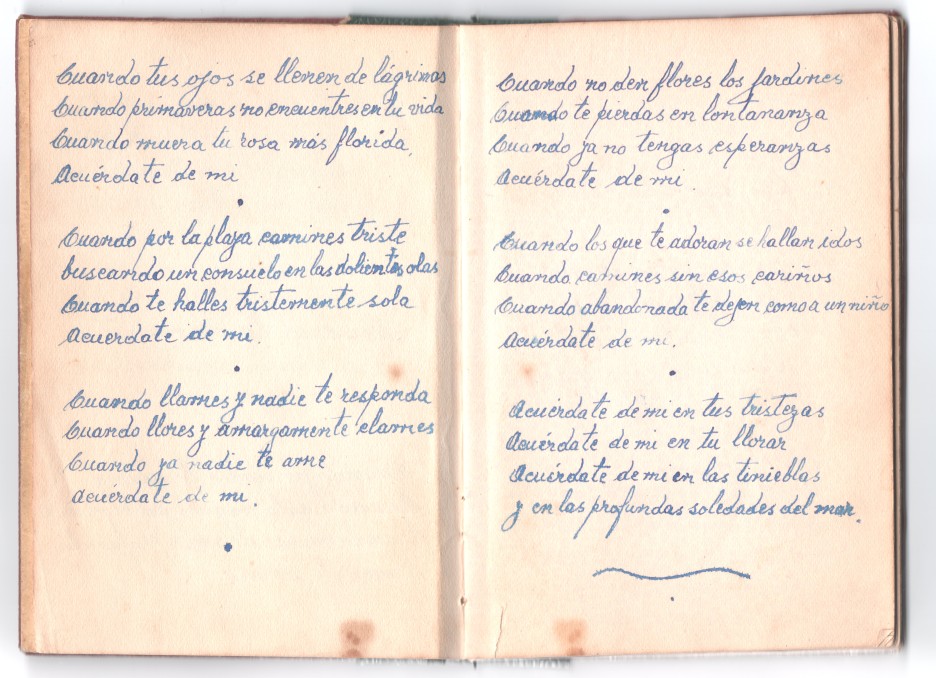 Cuando tus ojos se llenen de lágrimas
Cuando primaveras no encuentres en tu vida
Cuando muera tu rosa más florida,
Acuérdate de mi
Cuando por la playa camines triste
buscando un consuelo en las dolientes olas
Cuando te halles tristemente sola
Acuerdate de mi.
Cuando llames y nadie te responda
Cuando llores y amargamente clames
Cuando ya nadie te ame
Acuérdate de mi.
Cuando no den flores los jardines
Cuando te pierdas en lontananza
Cuando ya no tengas esperanzas
Acuérdate de mi.
Cuando los que te adoran se hallan idos
Cuando camines sin esos cariños
Cuando abandonada te dejen como a un niño
Acuérdate de mi.
Acuérdate de mi en tus tristezas
Acuérdate de mi en tu llorar
Acuérdate de mi en las tinieblas
y en las profundas soledades del mar.